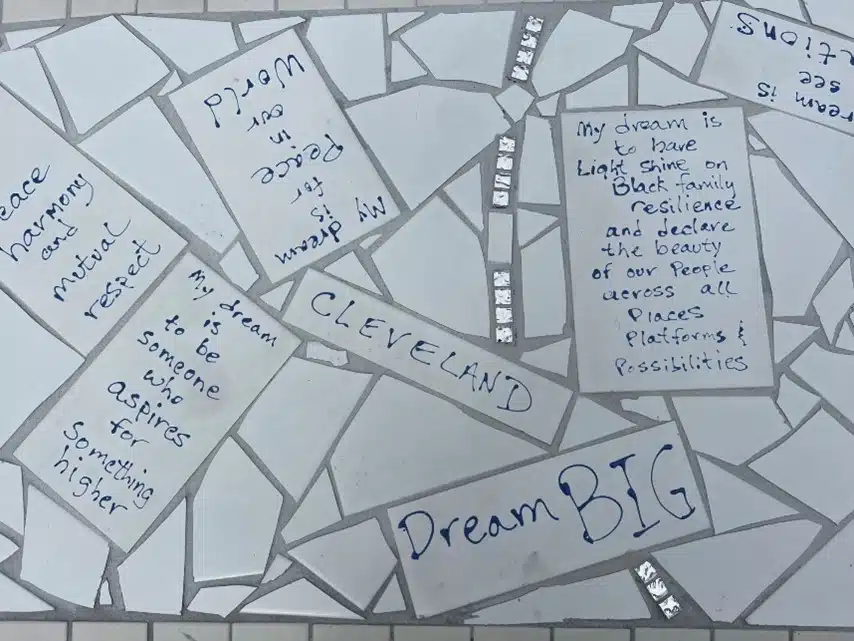 My dream
is
Peace for
in
our
World
ream is
see
ctions
My dream is
to have
Light shine on
Black family
resilience
and declare
the beauty
of our People
across all
Places
Platforms &
Possibilities
eace
harmony
and
mutual
respect
My dream
is
to be
someone
who
aspires
for
something
higher
CLEVELAND
Dream BIG